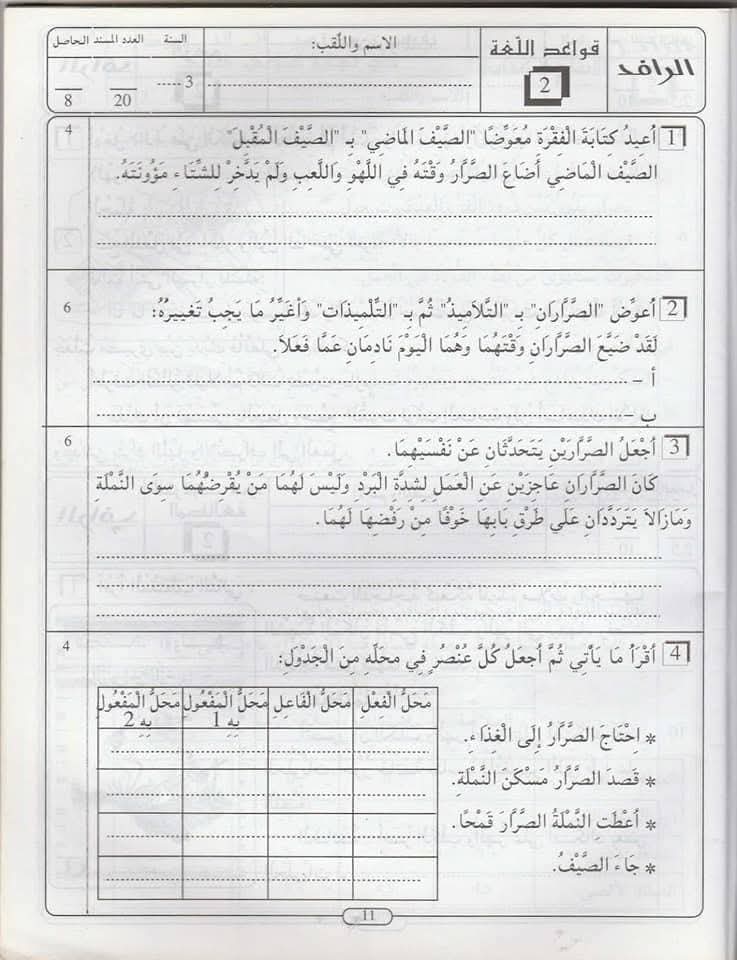 الرافد
قواعد اللّغة
2
الاسم واللّقب:
السنة
3
العدد المسند الحاصل
20
8
1 أُعِيدُ كِتَابَةَ الْفِقْرَةِ مُعَوِّضًا "الصَّيْفَ الْمَاضِي" بِـ "الصَّيْفَ الْمُقْبِلَ"
4
الصَّيْفَ الْمَاضِي أَضَاعَ الصَّرَّارُ وَقْتَهُ فِي اللَّهْوِ وَاللَّعِبِ وَلَمْ يَدَّخِرْ لِلشِّتَاءِ مَؤُونَتَهُ.
2 أُعوِّض "الصَّرَّارَانِ" بِـ "التَّلَامِيذُ" ثُمَّ بِـ "التِّلْمِيذَات" وَأُغَيِّرُ مَا يَجِبُ تَغْيِيرُهُ:
6
لَقَدْ ضَيَّعَ الصَّرَّارَانِ وَقْتَهُمَا وَهُمَا الْيَوْمَ نَادِمَانِ عَمَّا فَعَلَا.
أ -
ب -
3 أَجْعَلُ الصَّرَّارَيْنِ يَتَحَدَّثَانِ عَنْ نَفْسَيْهِمَا.
6
كَانَ الصَّرَّارَانِ عَاجِزَيْنِ عَنِ الْعَمَلِ لِشدَّةِ الْبَرْدِ وَلَيْسَ لَهُمَا مَنْ يُقْرِضُهُمَا سِوَى النَّمْلَةِ
وَمَازَالَا يَتَرَدَّدَانِ عَلَي طَرْقِ بَابِهَا خَوْفًا مِنْ رَفْضِهَا لَهُمَا.
4 أَقْرَأُ مَا يَأْتِي ثُمَّ أَجعَلُ كُلَّ عُنْصُرٍ فِي مَحَلِّهِ مِنَ الْجَدْوَلِ:
4
مَحَلُّ الْفِعْلِ مَحَلُّ الْفَاعِلِ مَحَلُّ الْمَفْعُولِ بِهِ 1 مَحَلُّ الْمَفْعُولِ بِهِ 2
* اِحْتَاجَ الصَّرَّارُ إِلَى الْغِذَاءِ.
* قَصَدَ الصَّرَّارُ مَسْكَنَ النَّمْلَةِ.
* أَعْطَتِ النَّمْلَةُ الصَّرَّارَ قَمْحًا.
* جَاءَ الصَّيْفُ.
11